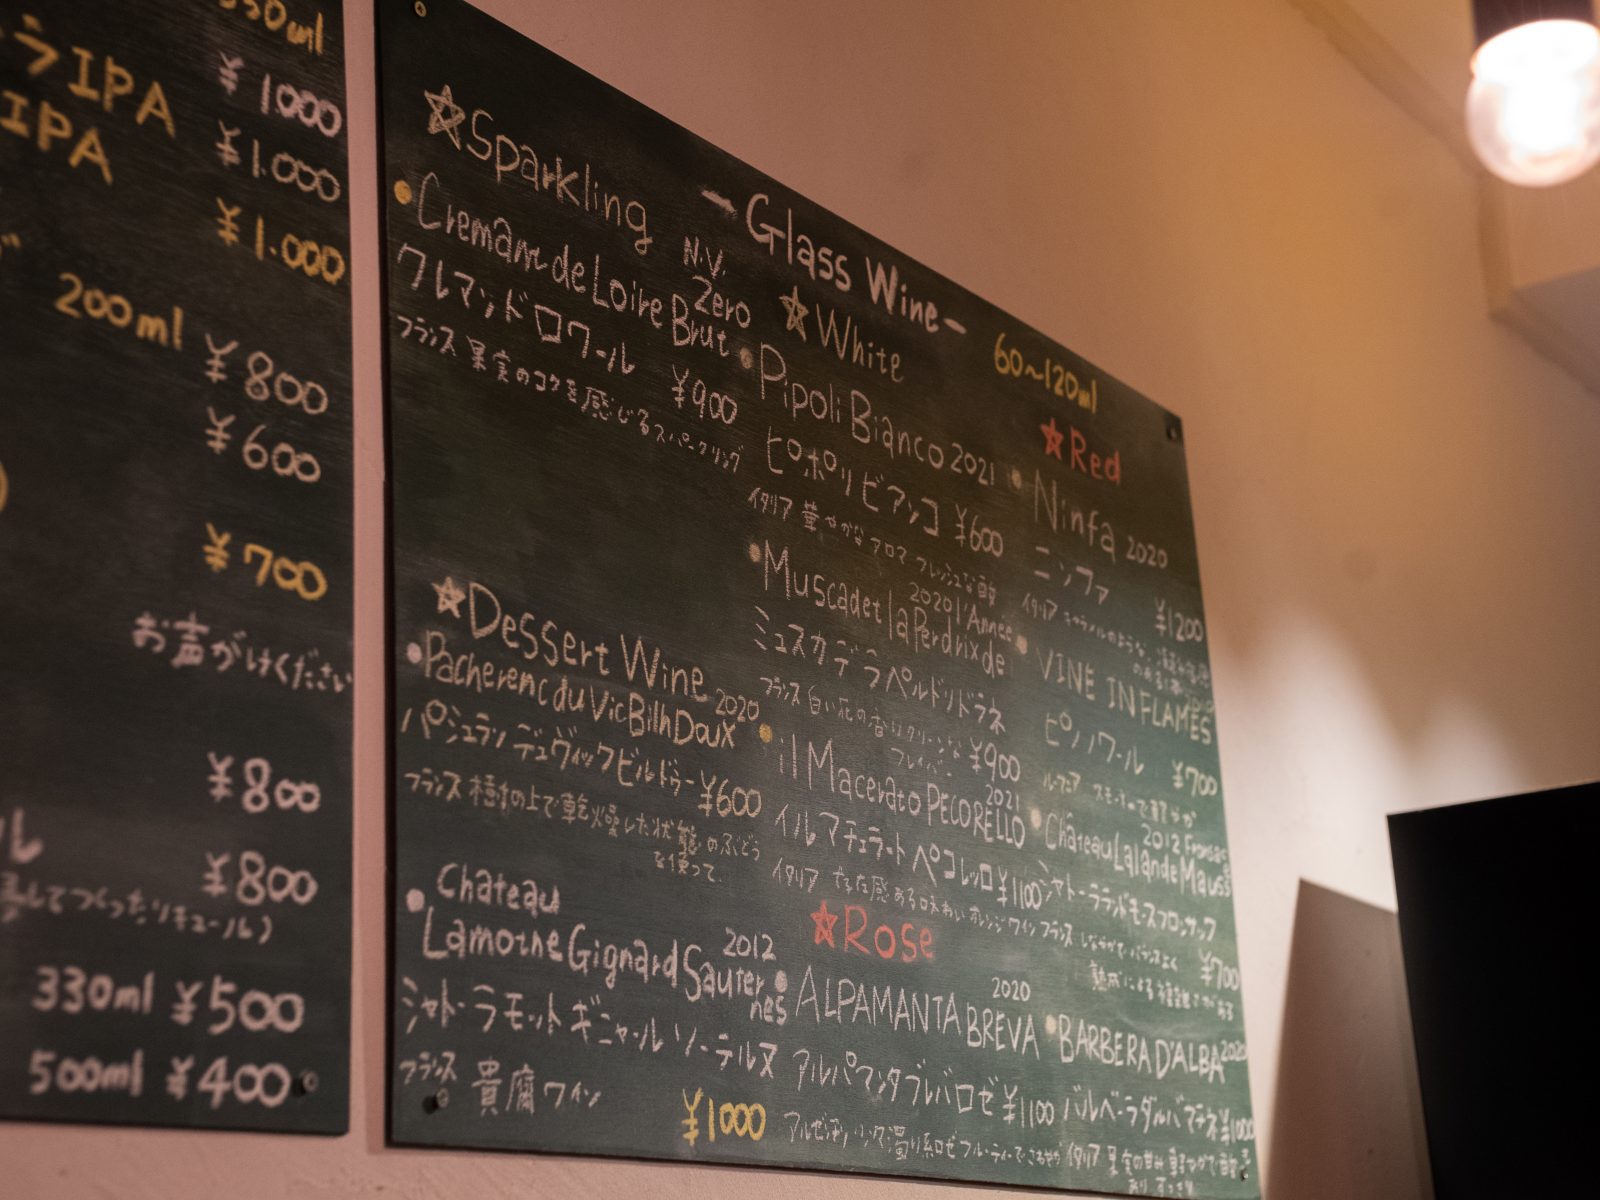 350ml
ラIPA ¥1000
IPA ¥1.000
¥1.000
200ml ¥800
¥600
¥700
お声がけください
¥800
¥800
してつくったリキュール)
330ml ¥500
500ml ¥400
-Glass Wine-
60~120ml
☆Sparkling
•Cremant de Loire Brut
N.V. Zero
クレマンドロワール ¥900
フランス 果実のコクを感じるスパークリング
☆Dessert Wine
•Pacherenc du Vic Bilh Doux 2020
パシュラン デュ ヴィック ビル ドゥー ¥600
フランス 樹の上で乾燥した状態のぶどう
を使って
•Chateau
Lamothe Gignard Sauternes 2012
シャトー ラモット ギニャール ソーテルヌ
フランス 貴腐ワイン ¥1000
☆White
•Pipoli Bianco 2021
ピポリ ビアンコ ¥600
イタリア 華やかなアロマ フレッシュな
•Muscadet la Perdrix de
2020 l'Année
ミュスカデ ラ ペルドリ ドラネ
フランス 白い花の香り グリーンな
フレイバー ¥900
•il Macerato PECORELLO 2021
イル マチェラート ペコレッロ ¥1100
イタリア 存在感ある味わい オレンジワイン
☆Rose
•ALPAMANTA BREVA 2020
アルパマンタ ブレバ ロゼ ¥1100
アルゼンチン 少々濁り系ロゼ フルーティーで
☆Red
•Ninfa 2020
ニンファ ¥1200
イタリア キャラメルのような
•VINE IN FLAMES
ピノ ノワール ¥700
ルーマニア スモーキーで
•Château Lalande Mausse
2012 Fronsac
シャトー ラランド モース フロンサック
フランス しなやかで バランスよく ¥700
熟成による複雑
•BARBERA D'ALBA 2020
バルベーラ ダルバ マチネ ¥1000
イタリア 果実の甘み 軽やかで